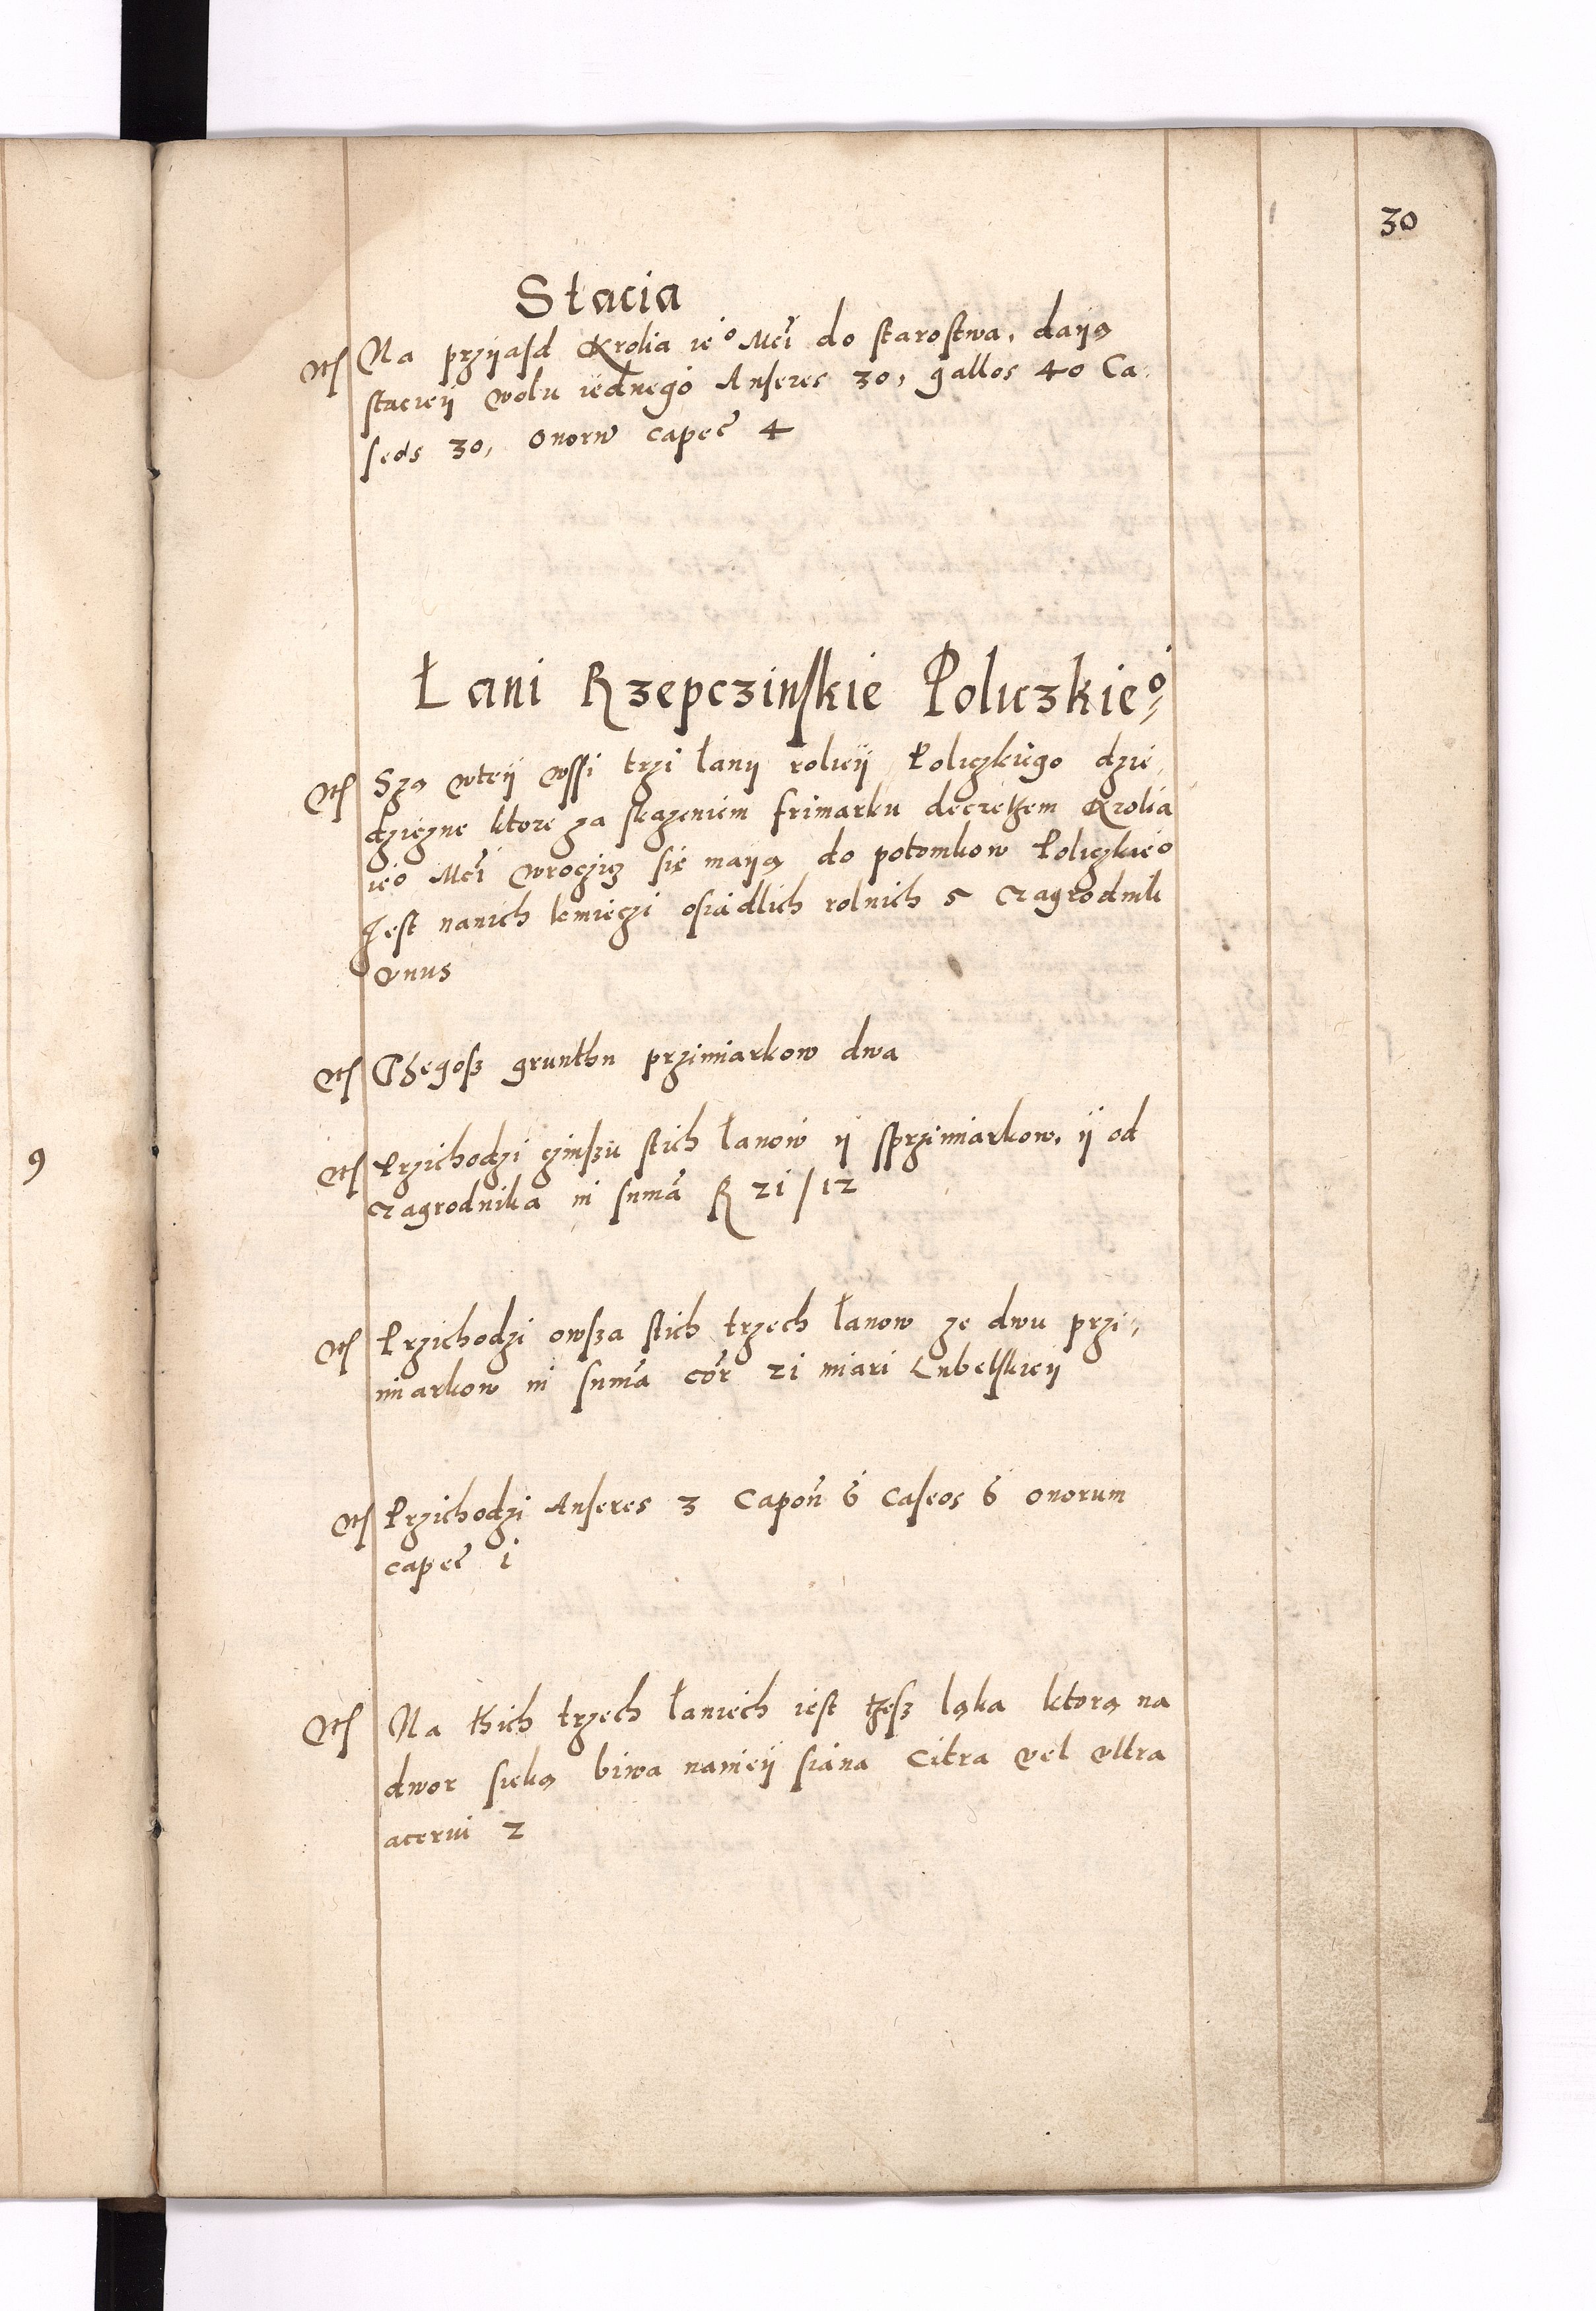 30
Stacia
Na przijasd Krolia ieº Mći do starostwa, daiją
stacieij wolu iednego Anseres 30, gallos 40 Ca-
seos 30, Ovorũ capeć 4
Łani Rzepczinskie Policzkieº
Są wteij wssi trzi łanij rolieij Policzkiego dzie-
dziczne ktore za skazeniem frimarku decretem Krolia
ieº Mći wroczicz się maiją do potomkow Policzkieº
Jest nanich kmieczi osiadlich rolnich 5 Zagrodnik
vnus
Thegosz grunthu przimiarkow dwa
Przichodzi czinszu stich łanow ij sprzimiarkow, ij od
Zagrodnika in sumã R 21/12
Przichodzi owsza stich trzech łanow ze dwu przi-
miarkow in sumã cor 21 miari Lubelskieij
Przichodzi Anseres 3 Capoñ 6 Caseos 6 Ovorum
capeć 1
Na thich trzech łaniech iest thesz ląka ktorą na
dwor sieką biwa nanieij siana Citra vel vltra
acerui 2
9